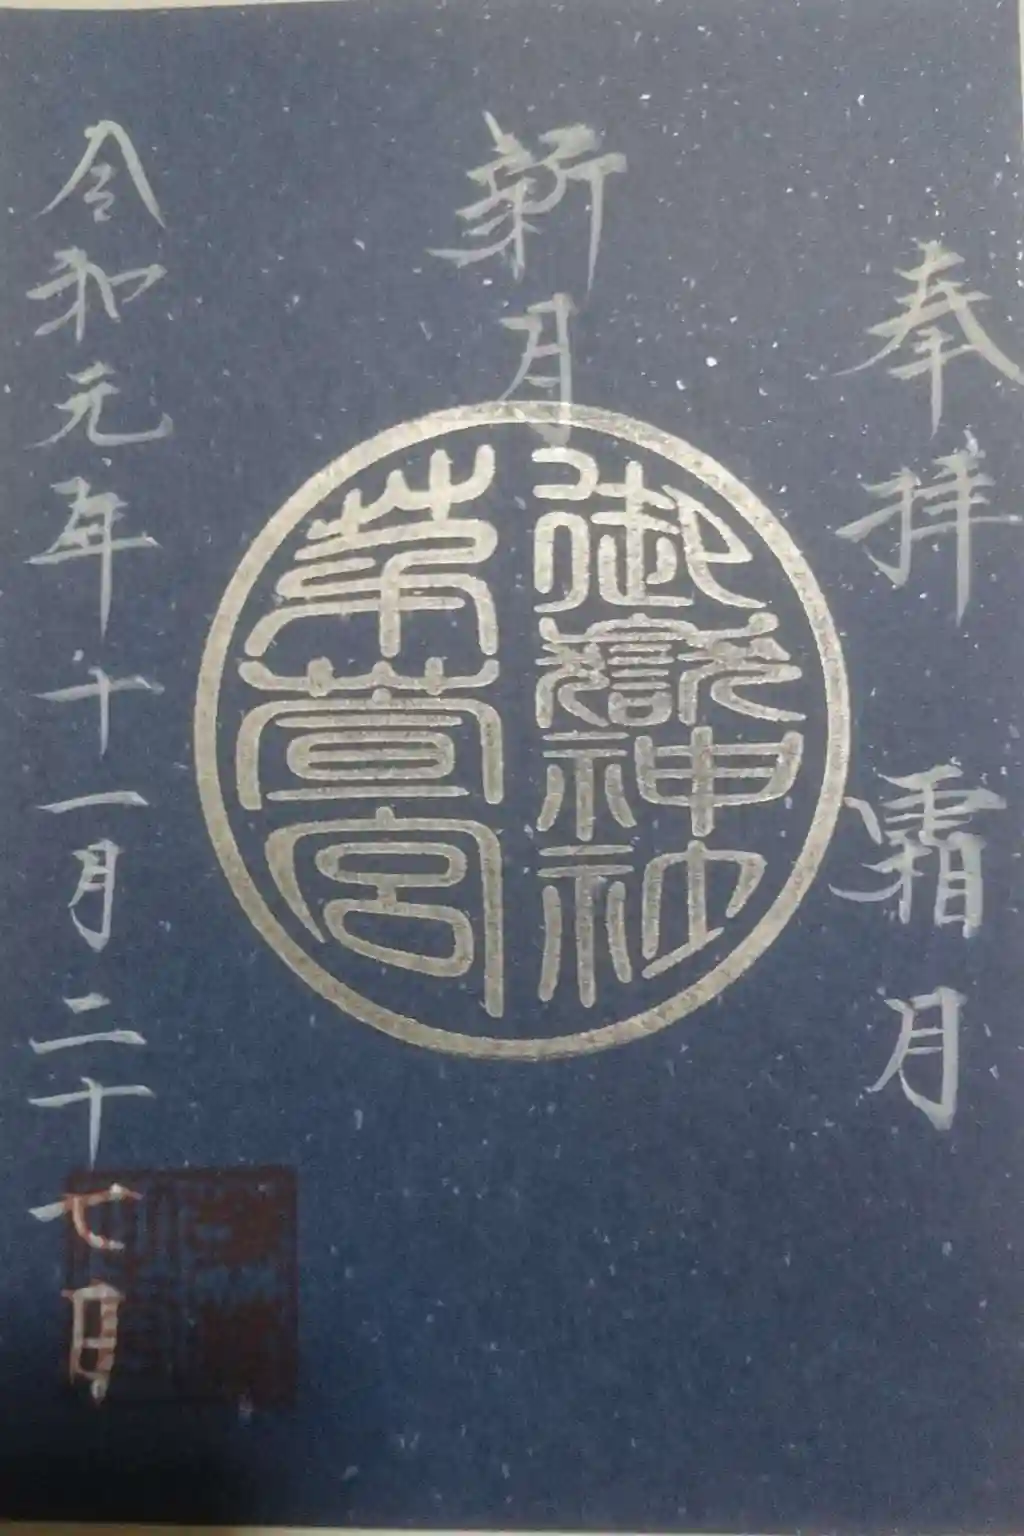 奉拝　霜月
新月
御嶽神社
茅萱宮
令和元年十一月二十七日